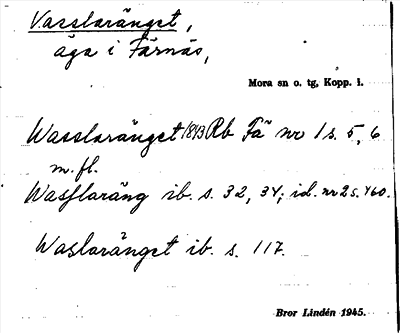 Vasslaränget,
äga i Färnäs,
Mora sn o. tg, Kopp. l.
Wasslaränget 1813 Rb Fä nr 1 s. 5, 6
m. fl.
Wasslaräng ib. s. 32, 34, id. nr 2 s. 460.
Waslaränget ib. s. 117.
Bror Lindén 1945.